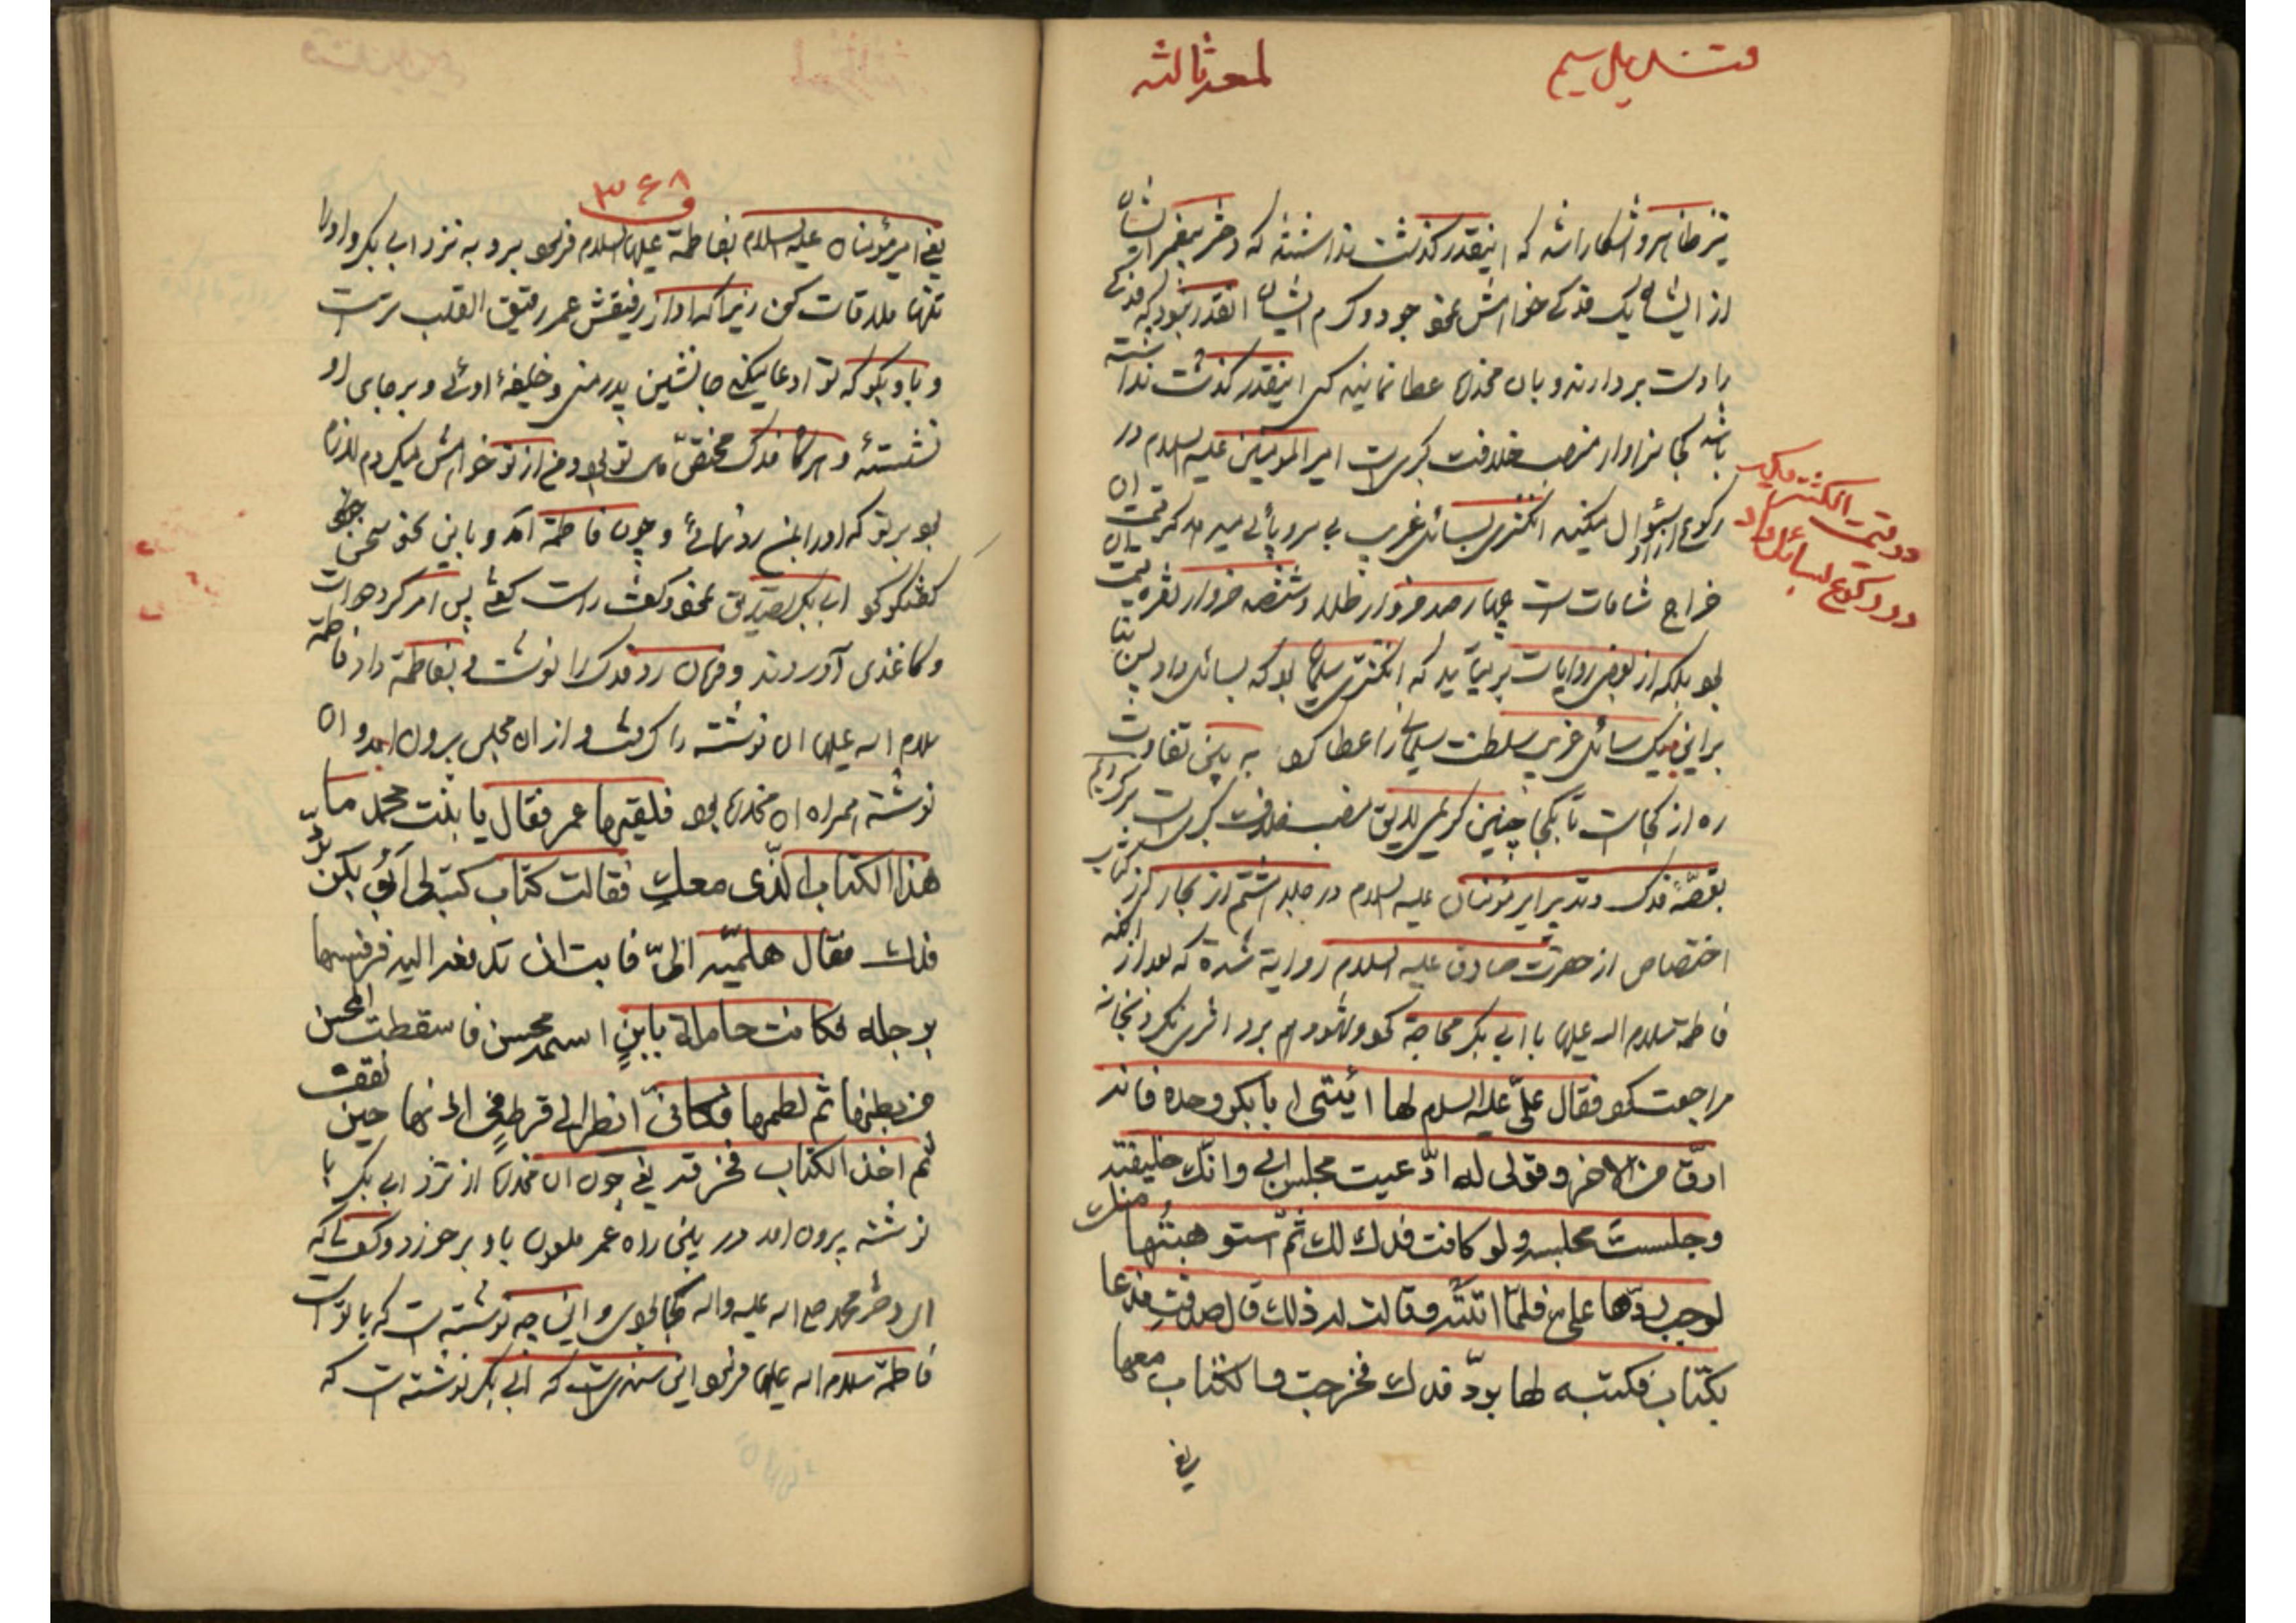 قندیل سیم
لمعه ثالثه
نیز ظاهر و آشکار باشد که اینقدر گذشت نداشتند که دختر پیغمبر ایشان
از ایشان یک فدکی خواهش نمود جود و کرم ایشان آنقدر نبود که فدکی
را دست بردارند و بان مخدره عطا نمایند کی اینقدر گذشت نداشته
باشد کجا سزاوار منصب خلافت کبری است امیر المومنین علیه السلام در
رکوع سئوال میکنند انگشتری بسائل غریب بی سر و پائی میدهد که قیمت ان
خراج شامات است چهارصد خروار طلا و ششصد خروار نقره قیمت ان
بود بلکه از بعض روایات بر میآید که انگشتر سلیمان بود که بسائل داد پس بنا
براین بیک سائل غریب سلطنت سلیمانی را عطا کرد به بین تفاوت
ره از کجاست تا بکجا چنین کریمی لایق منصب خلافت کبری است برگردیم
بقصّهٔ فدک و تدبیر امیر مؤمنان علیه السلام در جلد هشتم از بحار از کتاب
اختصاص از حضرت صادق علیه السلام روایة شده که بعد از آنکه
فاطمة سلام الله علیها با ابی بکر محاجة کرد و شهود هم برد اثری نکرد بخانه
مراجعت کرد فقال علیّ علیه السلام لها ائیتی ابا بکر وحده فانه
ارقّ من الاخر و قولی له ادّعیت مجلس ابی و انّک خلیفته
و جلست مجلسه و لو کانت فدک لک ثمّ استوهبتُها منک
لوجب ردّها علیّ فلمّا اتته و قالت له ذلک قال صدقتِ فدعا
بکتاب فکتبه لها بردّ فدک فخرجت و الکتاب معها
یعنی
در قیمت انگشتر یکه
در رکوع بسائل داد
۳۶۸
یعنی امیر مؤمنان علیه السلام بفاطمة علیها السلام فرمود برو به نزد ابی بکر و او را
تنها ملاقات کن زیرا که او از رفیقش عمر رقیق القلب تر است
و باو بگو که تو ادعا میکنی جانشین پدر منی و خلیفهٔ اوئی و بر جای او
نشستهٔ و هرگاه فدک مختصّ تو بود و من از تو خواهش میکردم لازم
بود بر تو که او را بمن رد نمائی و چون فاطمة آمد و باین نحو سخن
گفتگو کرد ابی بکر تصدیق نمود و گفت راست گفتی پس امر کرد دوات
و کاغذی آوردند و فرمان رد فدک را نوشت و بفاطمة داد فاطمة
سلام الله علیها ان نوشته را گرفت و از ان مجلس بیرون امد و ان
نوشته همراه ان مخدره بود فلقیها عمر فقال یا بنت محمد ما
هذا الکتاب الّذی معکِ فقالت کتاب کتب لی ابو بکر بردّ
فدک فقال هلمّیه الیّ فابت ان تدفعه الیه فرفسها
برجله فکانت حاملة بابنٍ اسمه محسن فاسقطت المحسن
من بطنها ثم لطمها فکانّی انظر الی قرط فی اذنها حین نقفت
ثم اخذ الکتاب فخرقه یعنی چون ان مخدره از نزد ابی بکر با
نوشته بیرون امد در بین راه عمر ملعون باو بر خورد و گفت که
ای دختر محمد صلی الله علیه و اله کجا بودی و این چه نوشته است که با تو است
فاطمة سلام الله علیها فرمود این سندیست که ابی بکر نوشته است که